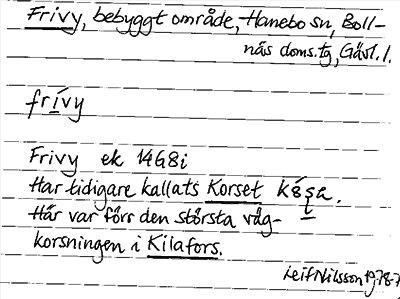 Frivy, bebyggt område, Hanebo sn, Boll-
näs doms. tg, Gävl. l.
frívy
Frivy ek 14G8i
Har tidigare kallats Korset
Här var förr den största väg-
korsningen i Kilafors.
Leif Nilsson 1978